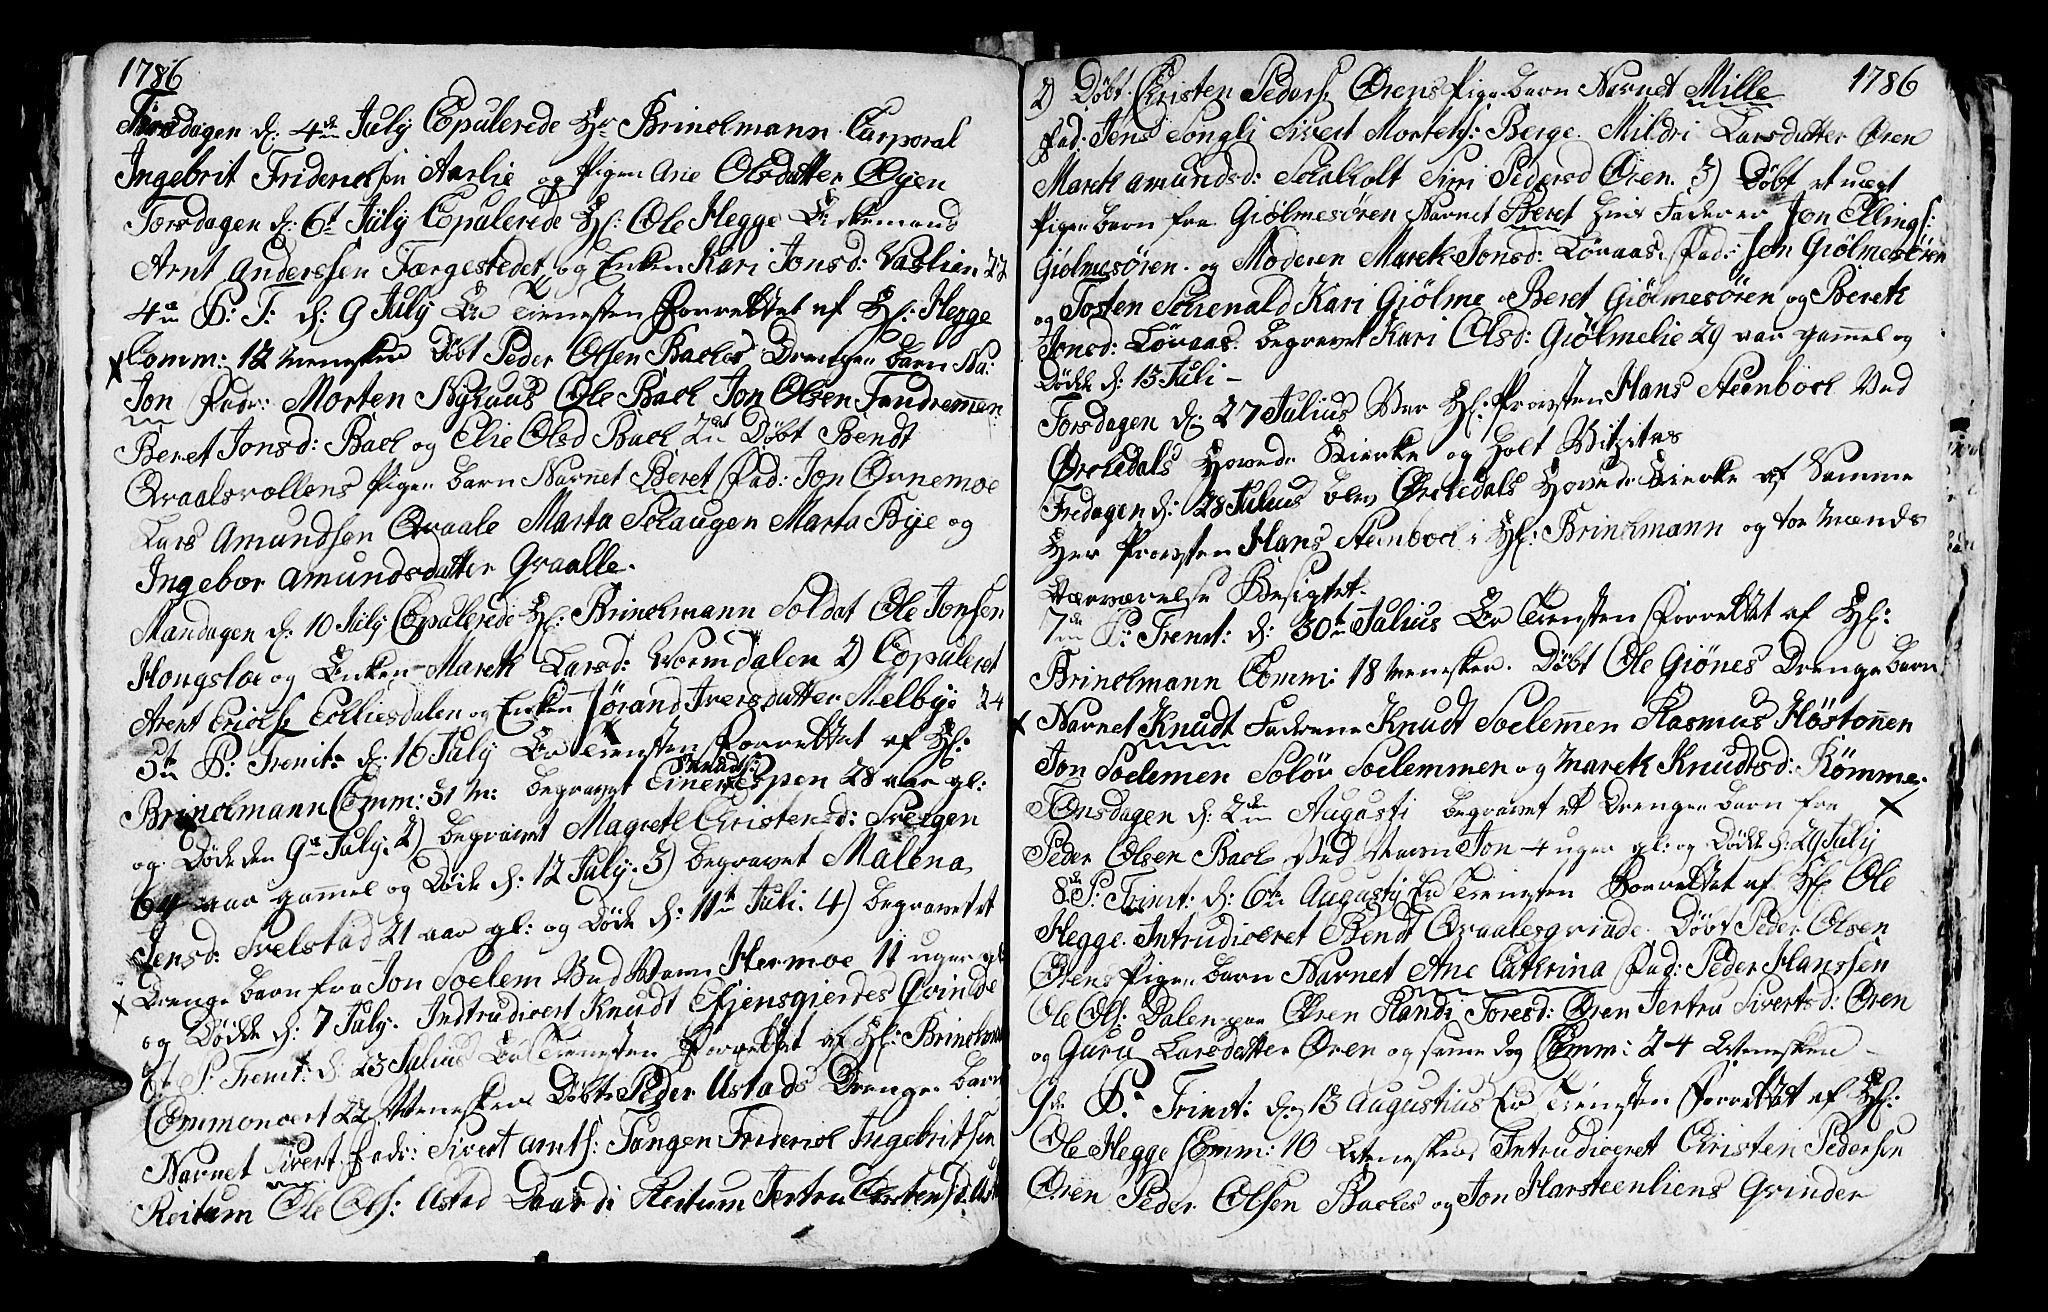 1786
Tirsdagen d: 4de July Copulerede Hr Brinchmann Carporal
Ingebrit Friderichsen Aarlie og Pigen Ane Olsdatter Øyen
Torsdagen d: 6t July Copulerede Hr: Ole Hegge Enkemand
Arnt Anderssen Færgestedet og Enken Kari Jonsd: Vaslien 22
4de P: T: d: 9 July Er Tienesten Forrettet af Hr: Hegge
Comm: 12 Mennesker Døbt Peder Olsen Baches Drenge barn Na:
Jon Fadr: Morten Nyhuus Ole Bach Jon Olsen Fandremmen
Beret Jonsd: Bach og Elie Olsd Bach 2det Døbt Bendt
Qraalsvollens Pige barn Navnet Beret Fad: Jon Ørnemoe
Lars Amundsen Qraale Marta Schaugen Marta Bye og
Ingebor Amundsdatter Graalle.
Mandagen d: 10 July Copulerede Hr: Brinchmann Soldat Ole Jonsen
Hongsloe og Enken Marek Larsd: Wormdalen 2) Copuleret
Arent Erichs Colliesdalen og Enken Jørand Iversdatter Melbye 24
5te P: Trenit: d: 16 July Er Tienesten Forrettet af Hr:
Brinchmann Comm: 31 M: begravet Einer Knuds: Espen 28 aar gl:
og Døde den 9de July. 2) begravet Magrete Cristensd: Svergen
64 aar gammel og Døde d: 12 July. 3) begravet Malena
Jensd: Svelstad 21 aar gl: og Døde d: 11te Juli. 4) begravet et
Drenge barn fra Jon Soelem Ved Navn Hermoe 11 uger gl
og Døde d: 7 July. Indtrudivert Knudt Efjensgierdes Qvinde
6te P: Trenit: d: 23 Julius Er Tienesten Forrettet af Hr: Brinchm
Commonicert 22 Mennesker Døbt Peder Ustads Drenge barn
Navnet Sivert. Fadr: Sivert Arnts: Tangen Friderich Ingebritsen
Reitum Ole Ols: Ustad Daardi Reitum Jertru Carstensd: Ust
1786
2) Døbt. Cristen Peders: Ørens Pige barn Navnet Mille
Fad: Jens Songli Sivert Mortens: Berge. Mildri Larsdatter Øren
Marek Amundsd: Schalholt Siri Pedersd Øren. 3) Døbt et uægt
Pige barn fra Giølmesøren Navnet Beret hvis Fader er Jon Ellings:
Giølmesøren. og Moderen Marek Jonsd: Løraas. Fad: Jon Giølmesøren
og Tosten Schenald Kari Giølme Beret Giølmesøren og Berek
Jonsd: Løraas. begravet Kari Olsd: Giølmelie 29 aar gammel og
Døde d: 13 Juli -
Torsdagen d: 27 Julius Var Hr: Provsten Hans Steenboch Ved
Ørchedals Hoved Kierke og holt Vizites
Fredagen d: 28 Julius blev Ørchedals Hoved Kierke af Samme
Her Provsten Hans Steenboch i Hr: Brinchmann og toe Mænds
Nærværelse Besigtet.
7de P: Trenit: d: 30te Julius Er Tienesten Forrettet af Hr:
Brinchmann Comm: 18 Mennesker. Døbt Ole Giønes Drenge barn
Navnet Knudt Fadrene Knudt Soelemmen Rasmus Höstonnen
Jon Soelemen Solöv Soelemmen og Marek Knudtsd: Römme.
Tonsdagen d: 2den Augusti begravet et Drenge barn fra
Peder Olsen Bach Ved Navn Jon 4 uger gl: og Døde d: 29 July
8de P: Trinit: d: 6te Augusti Er Tienesten Forrettet af Hr Ole
Hegge. Intrudiceret Bendt Qraalesqvinde. Døbt Peder Olsen
Ørens Pige barn Navnet Ane Cathrina Fad: Peder Hanssen
Ole Ols: Dalen paa Øren Randi Toresd: Øren Jertru Sivertsd: Øren
og Guru Larsdatter Øren og same dag Comm: 24 Mennesker
9de P: Trinit: d: 13 Augustius Er Tienesten Forrettet af Hr:
Ole Hegge Comm: 10 Mennesker, Intrudiceret Cristen Pedersen
Øren Peder Olsen Baches og Jon Harsteenliens Qvinder